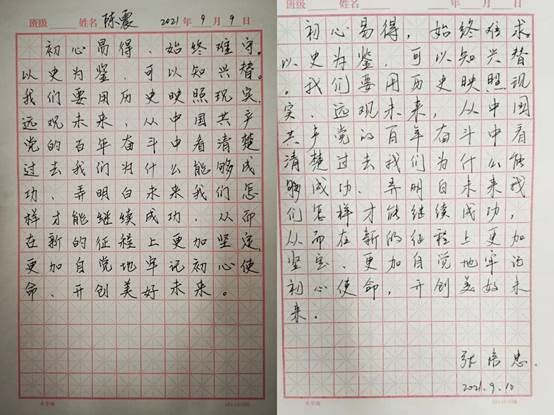 班级 姓名 陈震 2021年9月9日
初心易得、始终难守。
以史为鉴、可以知兴替。
我们要用历史映照现实、
远观未来、从中国共产
党的百年奋斗中看清楚
过去我们为什么能够成
功、弄明白未来我们怎
样才能继续成功、从而
在新的征程上更加坚定、
更加自觉地牢记初心使
命、开创美好未来。
班级 姓名 年 月 日
初心易得，始终难求。
以史为鉴，可以知兴替
。我们要用历史映照现
实、远观未来，从中国
共产党的百年奋斗中看
清楚过去我们为什么能
够成功、弄明白未来我
们怎样才能继续成功，
从而在新的征程上更加
坚定、更加自觉地牢记
初心使命，开创美好未
来。
张培忠
2021.9.10